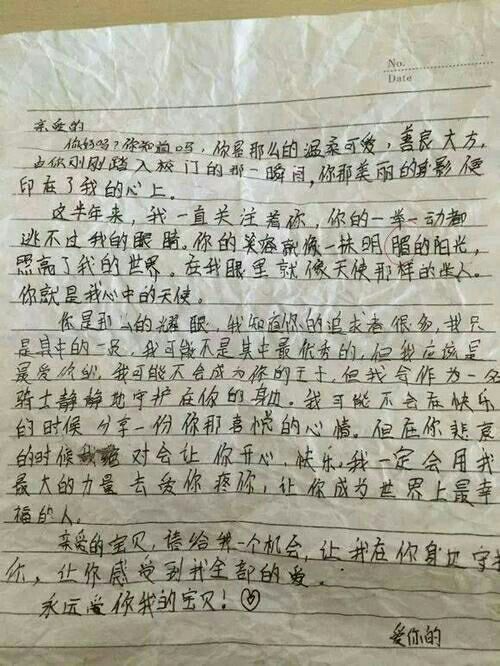 No.
Date
亲爱的
你好吗？你知道吗，你是那么的温柔可爱，善良大方，
当你刚刚踏入校门的那一瞬间，你那美丽的身影便
印在了我的心上。
这半年来，我一直关注着你，你的一举一动都
逃不过我的眼睛。你的笑容就像一抹明媚的阳光，
照亮了我的世界。在我眼里就像天使那样的坐人。
你就是我心中的天使。
你是那么的耀眼，我知道你的追求者很多，我只
是其中的一员，我可能不是其中最优秀的，但我应该是
最爱你的，我可能不会成为你的王子，但我会作为一名
骑士静静地守护在你的身边。我可能不会在快乐
的时候分享一份你那喜悦的心情。但在你悲哀
的时候我绝对会让你开心、快乐，我一定会用我
最大的力量去爱你疼你，让你成为世界上最幸
福的人。
亲爱的宝贝，请给我一个机会，让我在你身边守护
你，让你感受到我全部的爱。
永远爱你我的宝贝！
爱你的